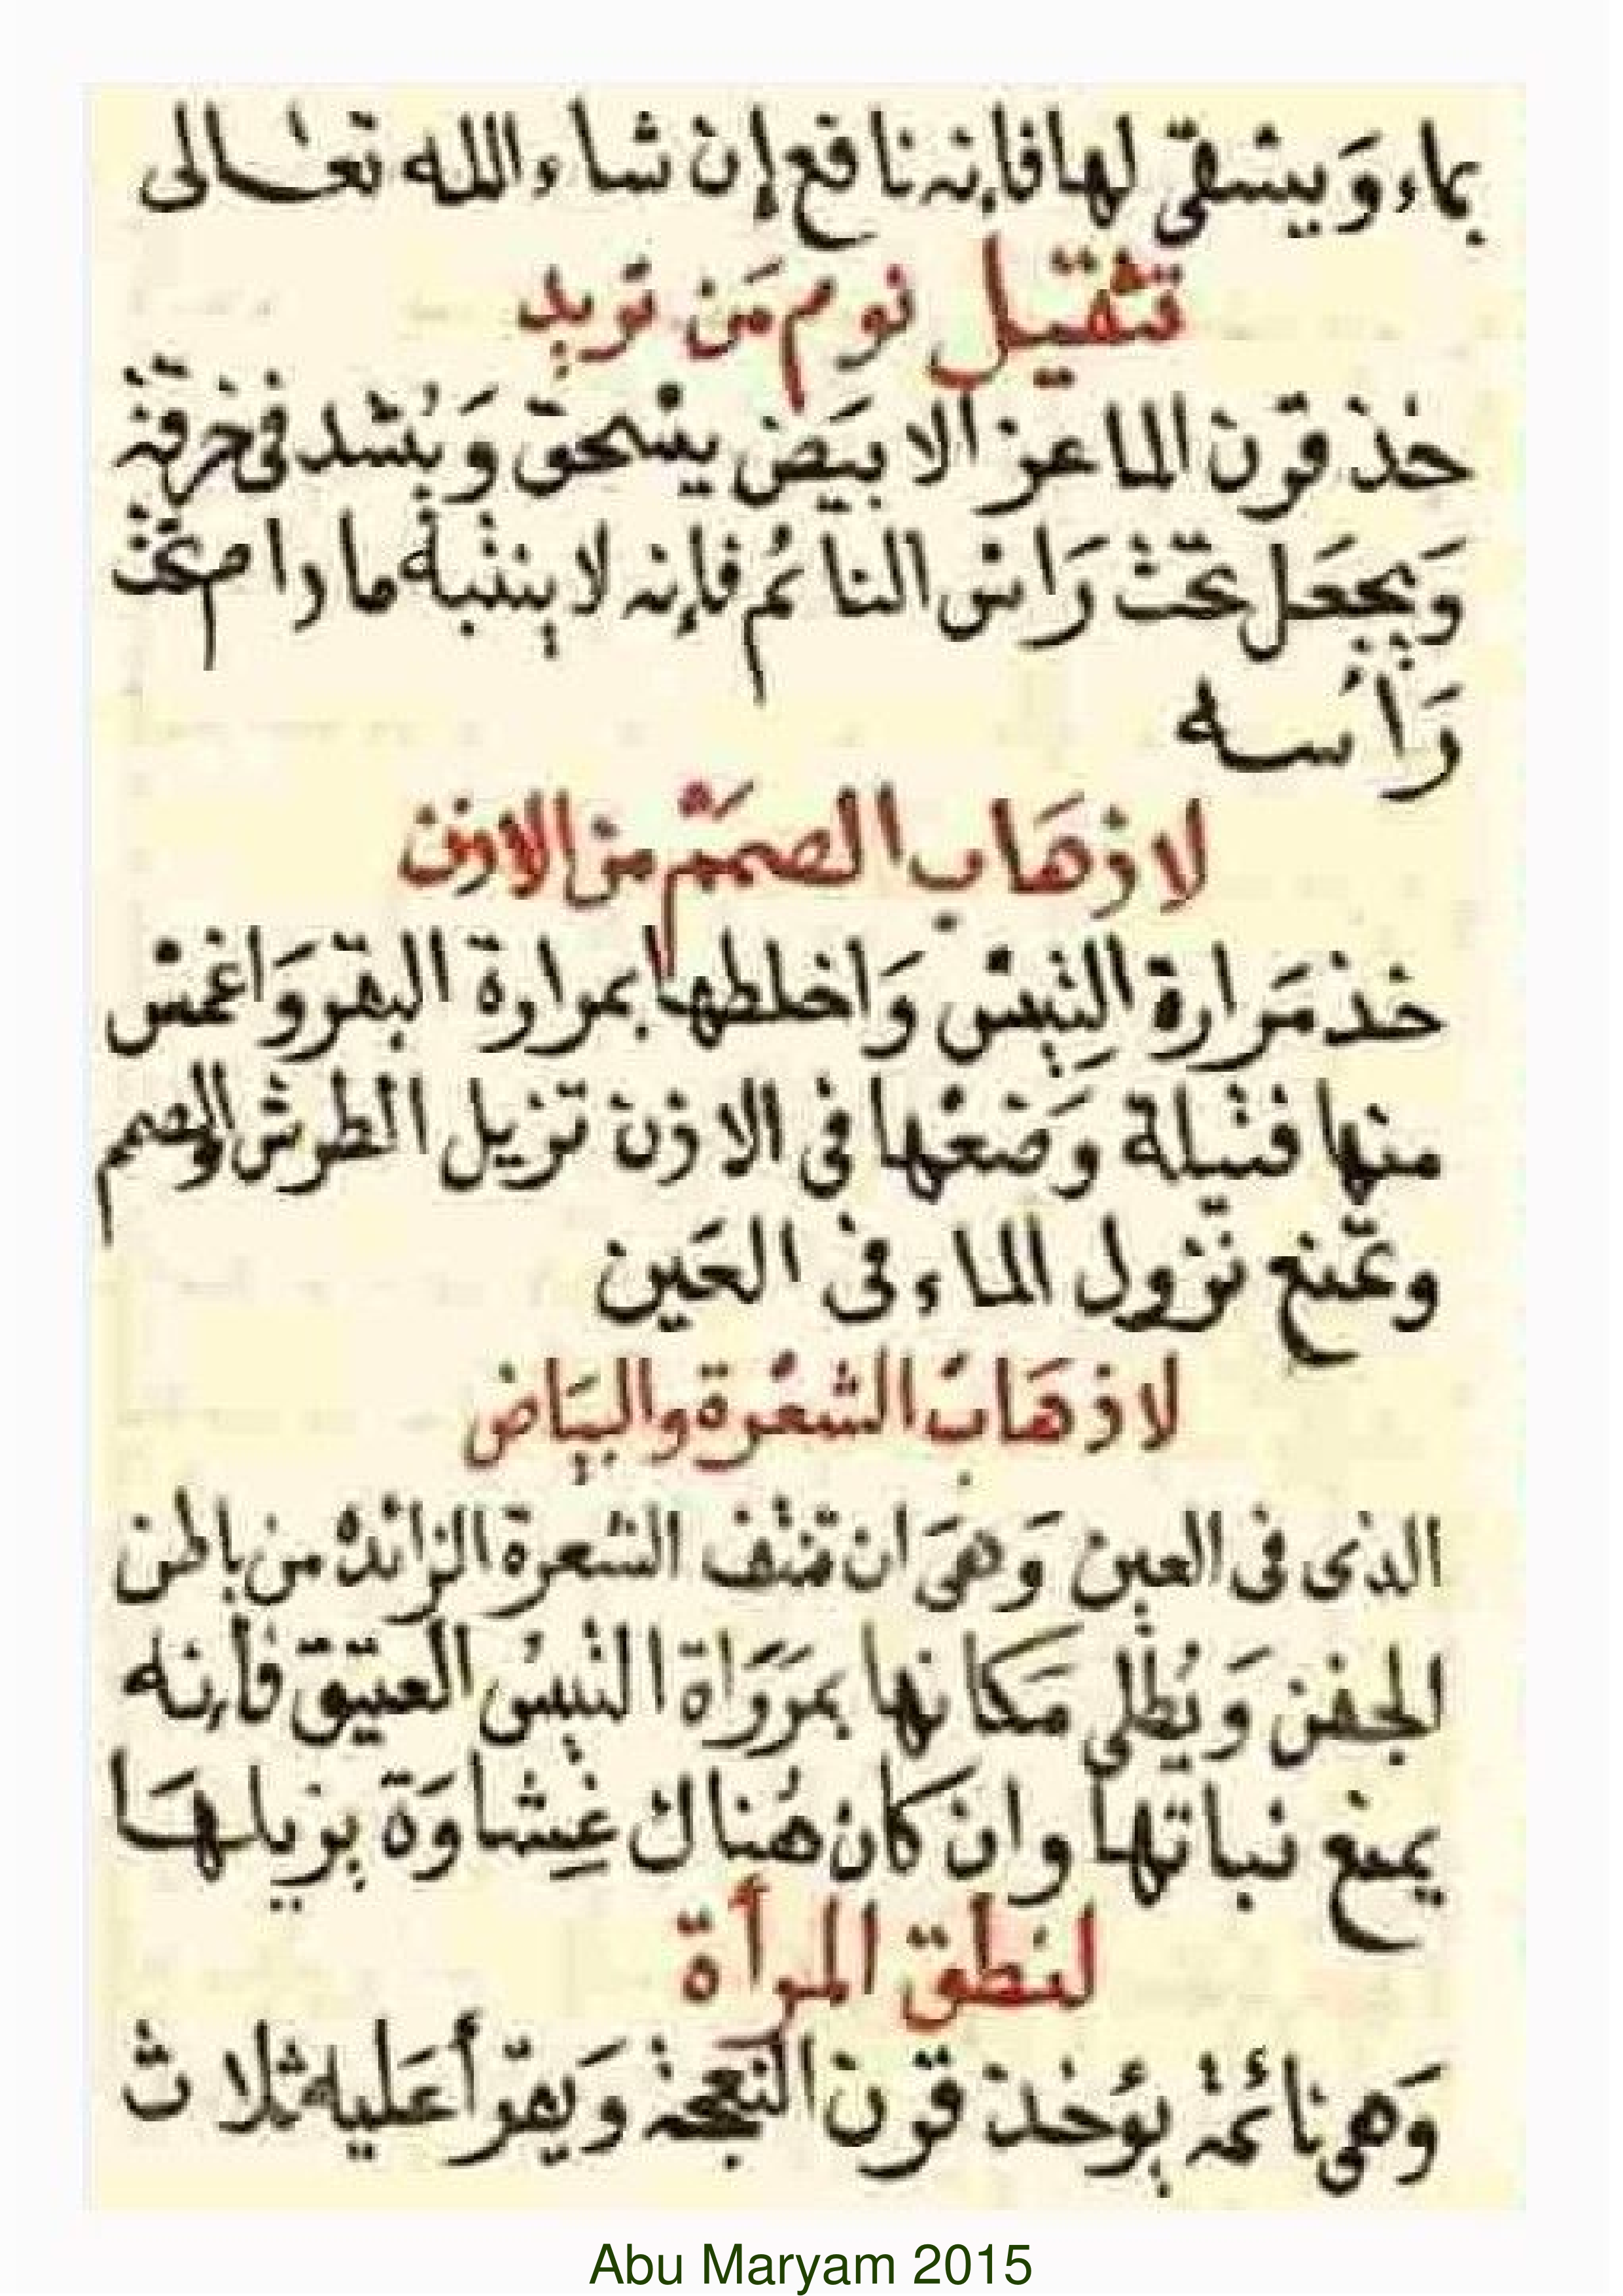 بماء وَيسقى لها فإنه نافع إن شاء الله تعالى
تثقيل نوم مَن تريد
خذ قرن الماعز الابيَض يسْحق وَيُشد فى خرقة
وَيجعَل تحت رَاس النائم فإنه لا ينتبه ما دام تحت
رَأسه
لاذهَاب الصمَم من الاذن
خذ مَرارة التِيسْ وَاخلطها بمرارة البقر وَاغمسْ
منها فتيلة وَضعْها فى الاذن تزيل الطرش والصمم
وتمنع نزول الماء فى العَين
لاذهَاب الشعْرة والبيَاض
الذى فى العين وَهىَ ان تنتف الشعرة الزائدة من باطن
الجفن وَيُطلى مَكانها بمَرَرَاة التيسْ العتيق فأنه
يمنع نباتها وان كان هُناك غِشاوَة يزيلهَا
لنطق المرأة
وَهى نائمة يؤخذ قرن النعجة وَيقرأ عَليه ثلاث
Abu Maryam 2015